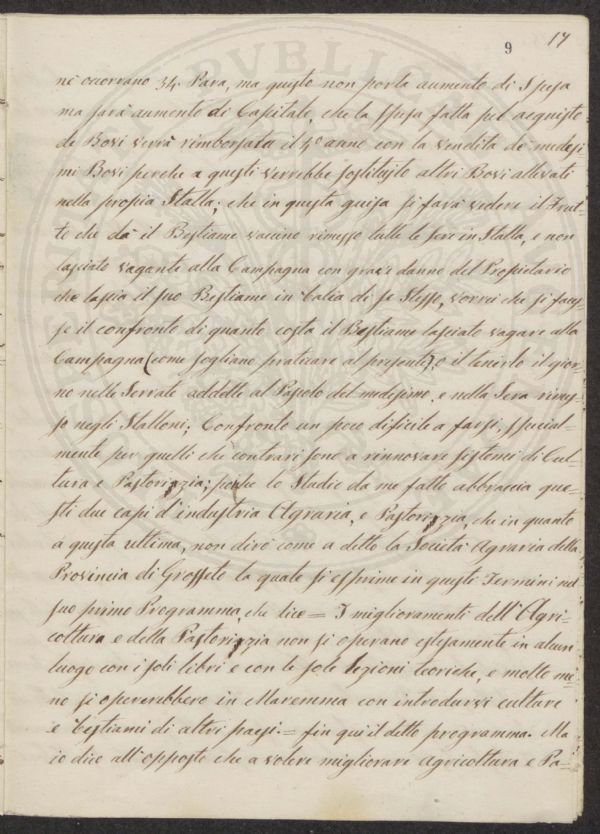 9
17
ne ocorrano 34. Para, ma questo non porta aumento di Spesa
ma farà aumento di Capitale, che la spesa fatta pel acquisto
de Bovi verrà rimborsata il 4º anno con la vendita de medesi-
mi Bovi perche a questi verrebbe sostituito altri Bovi allevati
nella propia Stalla; che in questa guisa si farà vedere il Frut-
to che dà il Bestiame vaccino rimesso tutte le Sere in Stalla, e non
lasciato vagante alla Campagna con gravi danno del Propietario
che lascia il suo Bestiame in balia di se Stesso, vorrei che si faces-
se il confronto di quanto costa il Bestiame lasciato vagare alla
Campagna (come sogliano praticare al presente) o il tenerlo il gior-
no nelle Serrate addette al Pascolo del medesimo, e nella Sera rimes-
so negli Stalloni; Confronto un poco dificile a farsi, special-
mente per quelli che contrari sono a rinnovare sistemi di Cul-
tura e Pastorizzia; poiche lo Studio da me fatto abbraccia que-
sti due capi d'industria Agraria, e Pastorizzia, che in quanto
a questa ultima, non dirò come a detto la Società Agraria della
Provincia di Grosseto la quale si esprime in questi Termini nel
suo primo Programma, che dice = I miglioramenti dell'Agri-
coltura e della Pastorizzia non si operano estesamente in alcun
luogo con i soli libri e con le sole lezioni teoriche, e molto me-
no si opererebbero in Maremma con introdurvi culture
e bestiami di altri paesi. = fin qui il detto programma. Ma
io dico all'opposto che a volere migliorare Agricoltura e Pa-